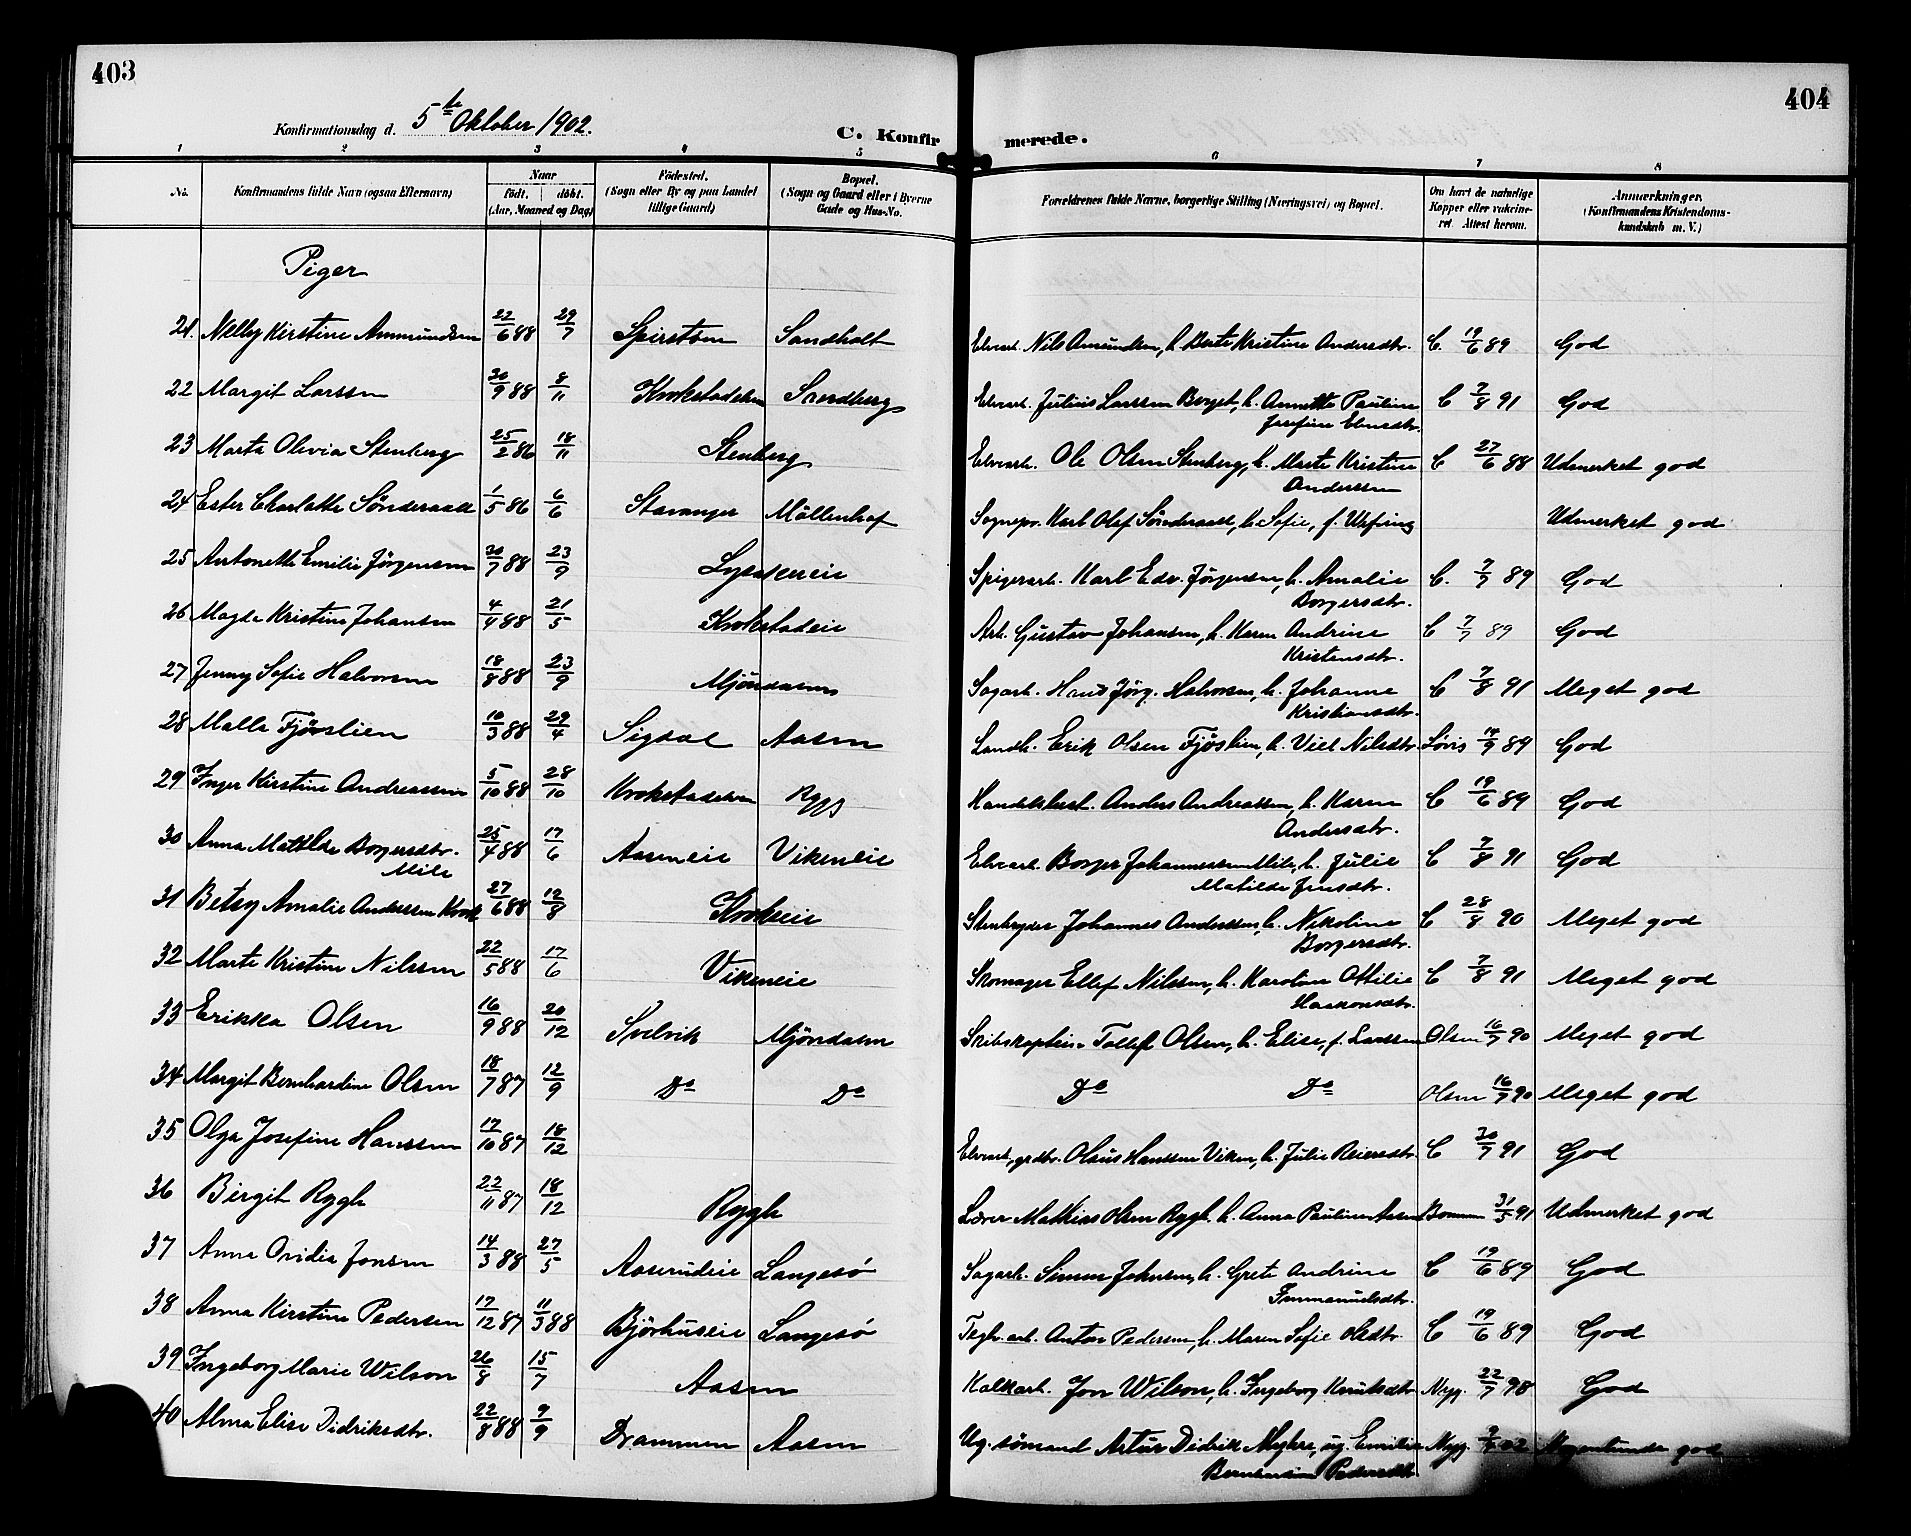 403
404
Konfirmationsdag d. 5te Oktober 1902.
C. Konfirmerede.
1 2 3 4 5 6 7 8
No.
Konfirmandens fulde Navn (ogsaa Efternavn)
Naar
födt. döbt.
(Aar, Maaned og Dag)
Födested.
(Sogn eller By og paa Landet
tillige Gaard)
Bopæl.
(Sogn og Gaard eller i Byerne
Gade og Hus-No.
Forældrenes fulde Navne, borgerlige Stilling (Næringsvei) og Bopæl.
Om havt de naturlige
Kopper eller vakcine-
ret. Attest herom.
Anmærkninger.
(Konfirmandens Kristendoms-
kundskab m. V.)
Piger
21. Nelly Kirstine Ammundsen 22/6 88 29/7 Spirstøen Sandholt Elvearb. Nils Amundsen, h. Berte Kristine Andersdtr. C. 19/6 89 God
22 Margit Larssen 30/9 88 8/11 Krokstadelven Sandberg Elvearb. Julius Larssen Borget, h. Annette Pauline C 7/8 91 God
Josefine Ebnesdtr.
23 Marta Olivia Stenberg 25/2 86 18/11 Stenberg Elvearb. Ole Olsen Stenberg, h. Marte Kristine C 27/6 88 Udmerket god
Anderssen
24 Ester Charlotte Sönderaall 1/5 86 6/6 Stavanger Möllenhof Sognepr. Karl Olef Sönderaal, h. Sofie, f. Urfring Udmerket god
25 Antonette Emilie Jörgensen 30/7 88 23/9 Spigerarb. Karl Edv. Jörgensen, h. Amalie C. 7/7 89 God
Borgersdtr.
26 Magda Kristine Johansen 4/4 88 21/5 Krokstadeie Arb. Gustav Johansen, h. Karen Andrine C 7/7 89 God
Kristensdtr.
27 Jenny Sofie Halvorsen 18/8 88 23/9 Mjöndalen Sagarb. Hans Jörg. Halvorsen, h. Johanne C 7/8 91 Meget god
Kristiansdtr.
28 Malla Fjöslien 10/3 88 29/4 Sigdal Aasen Landh. Erik Olsen Fjöslien, h. Viel Nilsdtr. Lövis 14/9 89 God
29 Inger Kirstine Andreassen 5/10 88 28/10 Krokstadelven Rygg Handelsbest. Anders Andreassen, h. Karen C 19/6 89 God
Andersdtr.
30 Anna Matilde Borgersdtr. 25/4 88 17/6 Aaseneie Vikeneie Elvearb. Borger Johannessen Mile, h. Julie C 7/8 91 God
Mile Matilde Jensdtr.
31 Betsy Amalie Anderssen Krok 27/6 88 12/8 Krokeie Stenbryder Johannes Anderssen, h. Nikoline C 28/8 90 Meget god
Borgersdtr.
32 Marte Kristine Nilssen 22/5 88 17/6 Vikeneie Skomager Ellef Nilssen, h. Karoline Ottilie C 7/8 91 Meget god
Haakonsdtr.
33 Erikka Olsen 16/9 88 20/12 Svelvik Mjöndalen Skibskaptein Tollef Olsen, h. Elise, f. Larssen Olsen 16/7 90 Meget god
34 Margit Bernhardine Olsen 18/7 87 12/9 Do Do Do Do Olsen 16/7 90 Meget god
35 Olga Josefine Hanssen 17/10 87 18/12 Elvearb. grdbr. Olaus Hanssen Viken, h. Julie Reiersdtr. C 30/7 91 God
36 Birgit Rygh 22/11 87 18/12 Rygh Lærer Mathias Olsen Rygh, h. Anna Pauline Aasen 31/5 91 Udmerket god
37 Anna Ovidia Jonsen 14/3 88 27/5 Aaserudeie Langesø Sagarb. Simen Johnsen, h. Grete Andrine C 19/6 89 God
Immanuelsdtr.
38 Anna Kirstine Pedersen 17/12 87 11/3 88 Björhuseie Langesø Teglv. arb. Anton Pedersen, h. Maren Sofie Olsdtr. C 19/6 89 God
39 Ingeborg Marie Wilson 26/8 15/7 Aasen Kalkarb. Jon Wilson, h. Ingeborg Knutsdtr. Nyg. 22/7 98 God
40 Alma Elise Didriksdtr. 22/8 88 9/9 Drammen Aasen Ug. sömand Artur Didrik Myhre, ug. Emilie Nyg. 02 god
Pedersdtr.